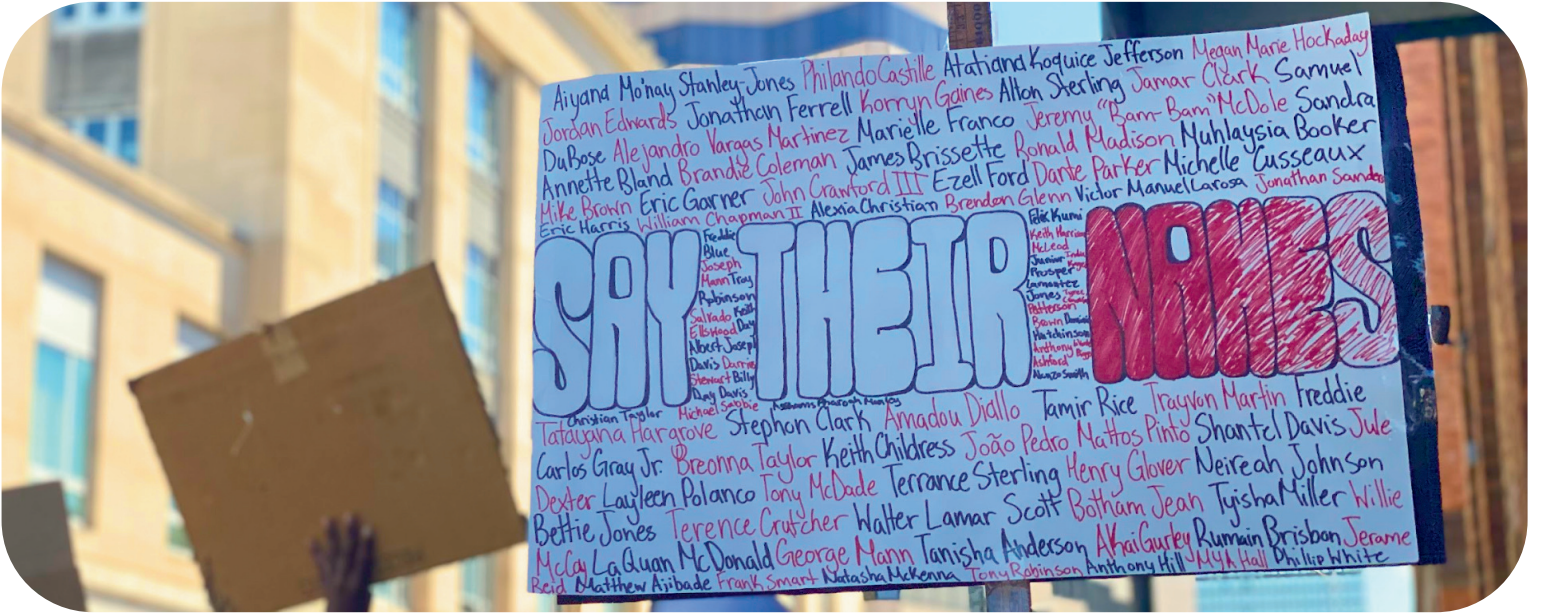 Aiyand Mo'nay Stanley-Jones Philando Castille Atatiand Koquice Jefferson Megan Marie Hockaday
Jordan Edwards Jonathan Ferrell Korryn Gaines Alton Sterling Jamar Clark Samuel
DuBose Alejandro Vargas Martinez Marielle Franco Jeremy "Bam-Bam" McDole Sandra
Annette Bland Brandie Coleman James Brissette Ronald Madison Muhlaysia Booker
Mike Brown Eric Garner John Crawford III Ezell Ford Dante Parker Michelle Cusseaux
Eric Harris William Chapman II Alexia Christian Brendon Glenn Victor Manuel Larosa Jonathan Sanders
SAY THEIR NAMES
Freddie
Blue
Joseph
Mann Troy
Robinson
Salvado Keith
Ellswood Day
Albert Joseph
Davis Darrie
Stewart Billy
Day Davis
Michael Sabbie
Felix Kumi
Keith Harrison
McLead
Junior
Prosper
Lamontez
Jones
Patterson
Brown
Hutchinson
Anthony
Ashford
Alonzo Smith
Christian Taylor
Tatayana Hargrove Stephon Clark Amadou Diallo Tamir Rice Trayvon Martin Freddie
Carlos Gray Jr. Breonna Taylor Keith Childress João Pedro Mattos Pinto Shantel Davis Jule
Dexter Layleen Polanco Tony McDade Terrance Sterling Henry Glover Neireah Johnson
Bettie Jones Terence Crutcher Walter Lamar Scott Botham Jean Tyisha Miller Willie
McCay LaQuan McDonald George Mann Tanisha Anderson Akai Gurley Rumain Brisbon Jerame
Reid Matthew Ajibade Frank Smart Natasha McKenna Tony Robinson Anthony Hill MYA Hall Phillip White